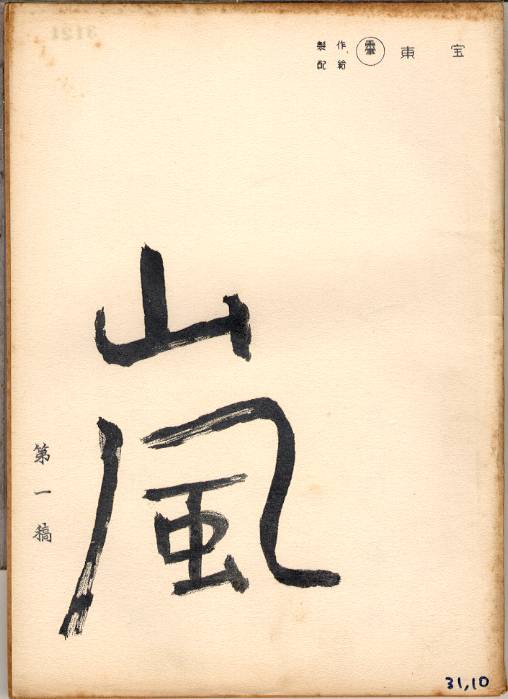 製作
配給
東宝
嵐
第一稿
31,10